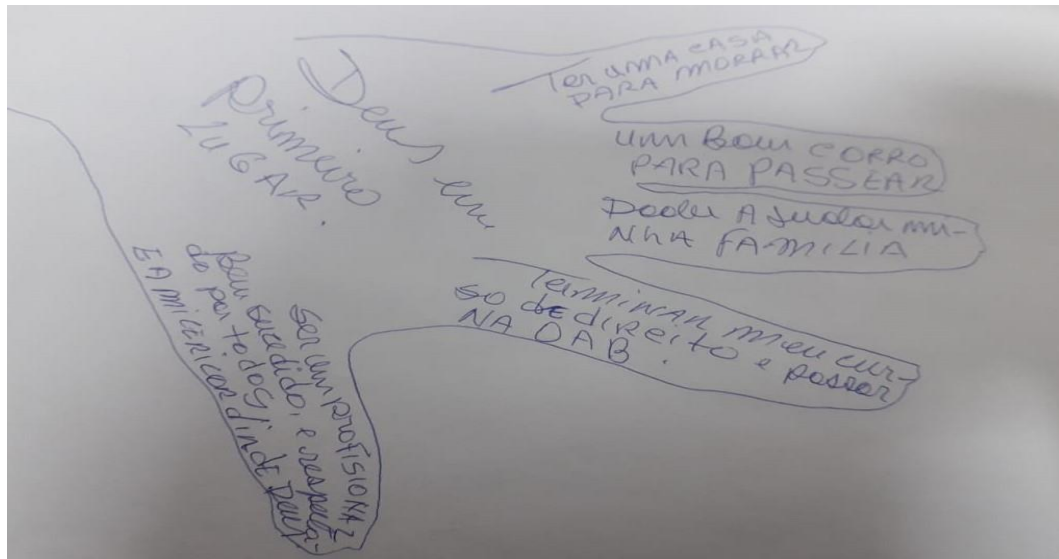 Deus em
Primeiro
LUGAR.
Ter umA CASA
PARA MORRAR
umm Bom CORRO
PARA PASSEAR
Poder AJudar mi-
NhA FAMILIA
TermiNAR meu cur-
so de direito e passar
NA OAB.
Ser um profisioNAL
Bem sucedido, e respeita-
do por todos,
E A micericordia de Deus